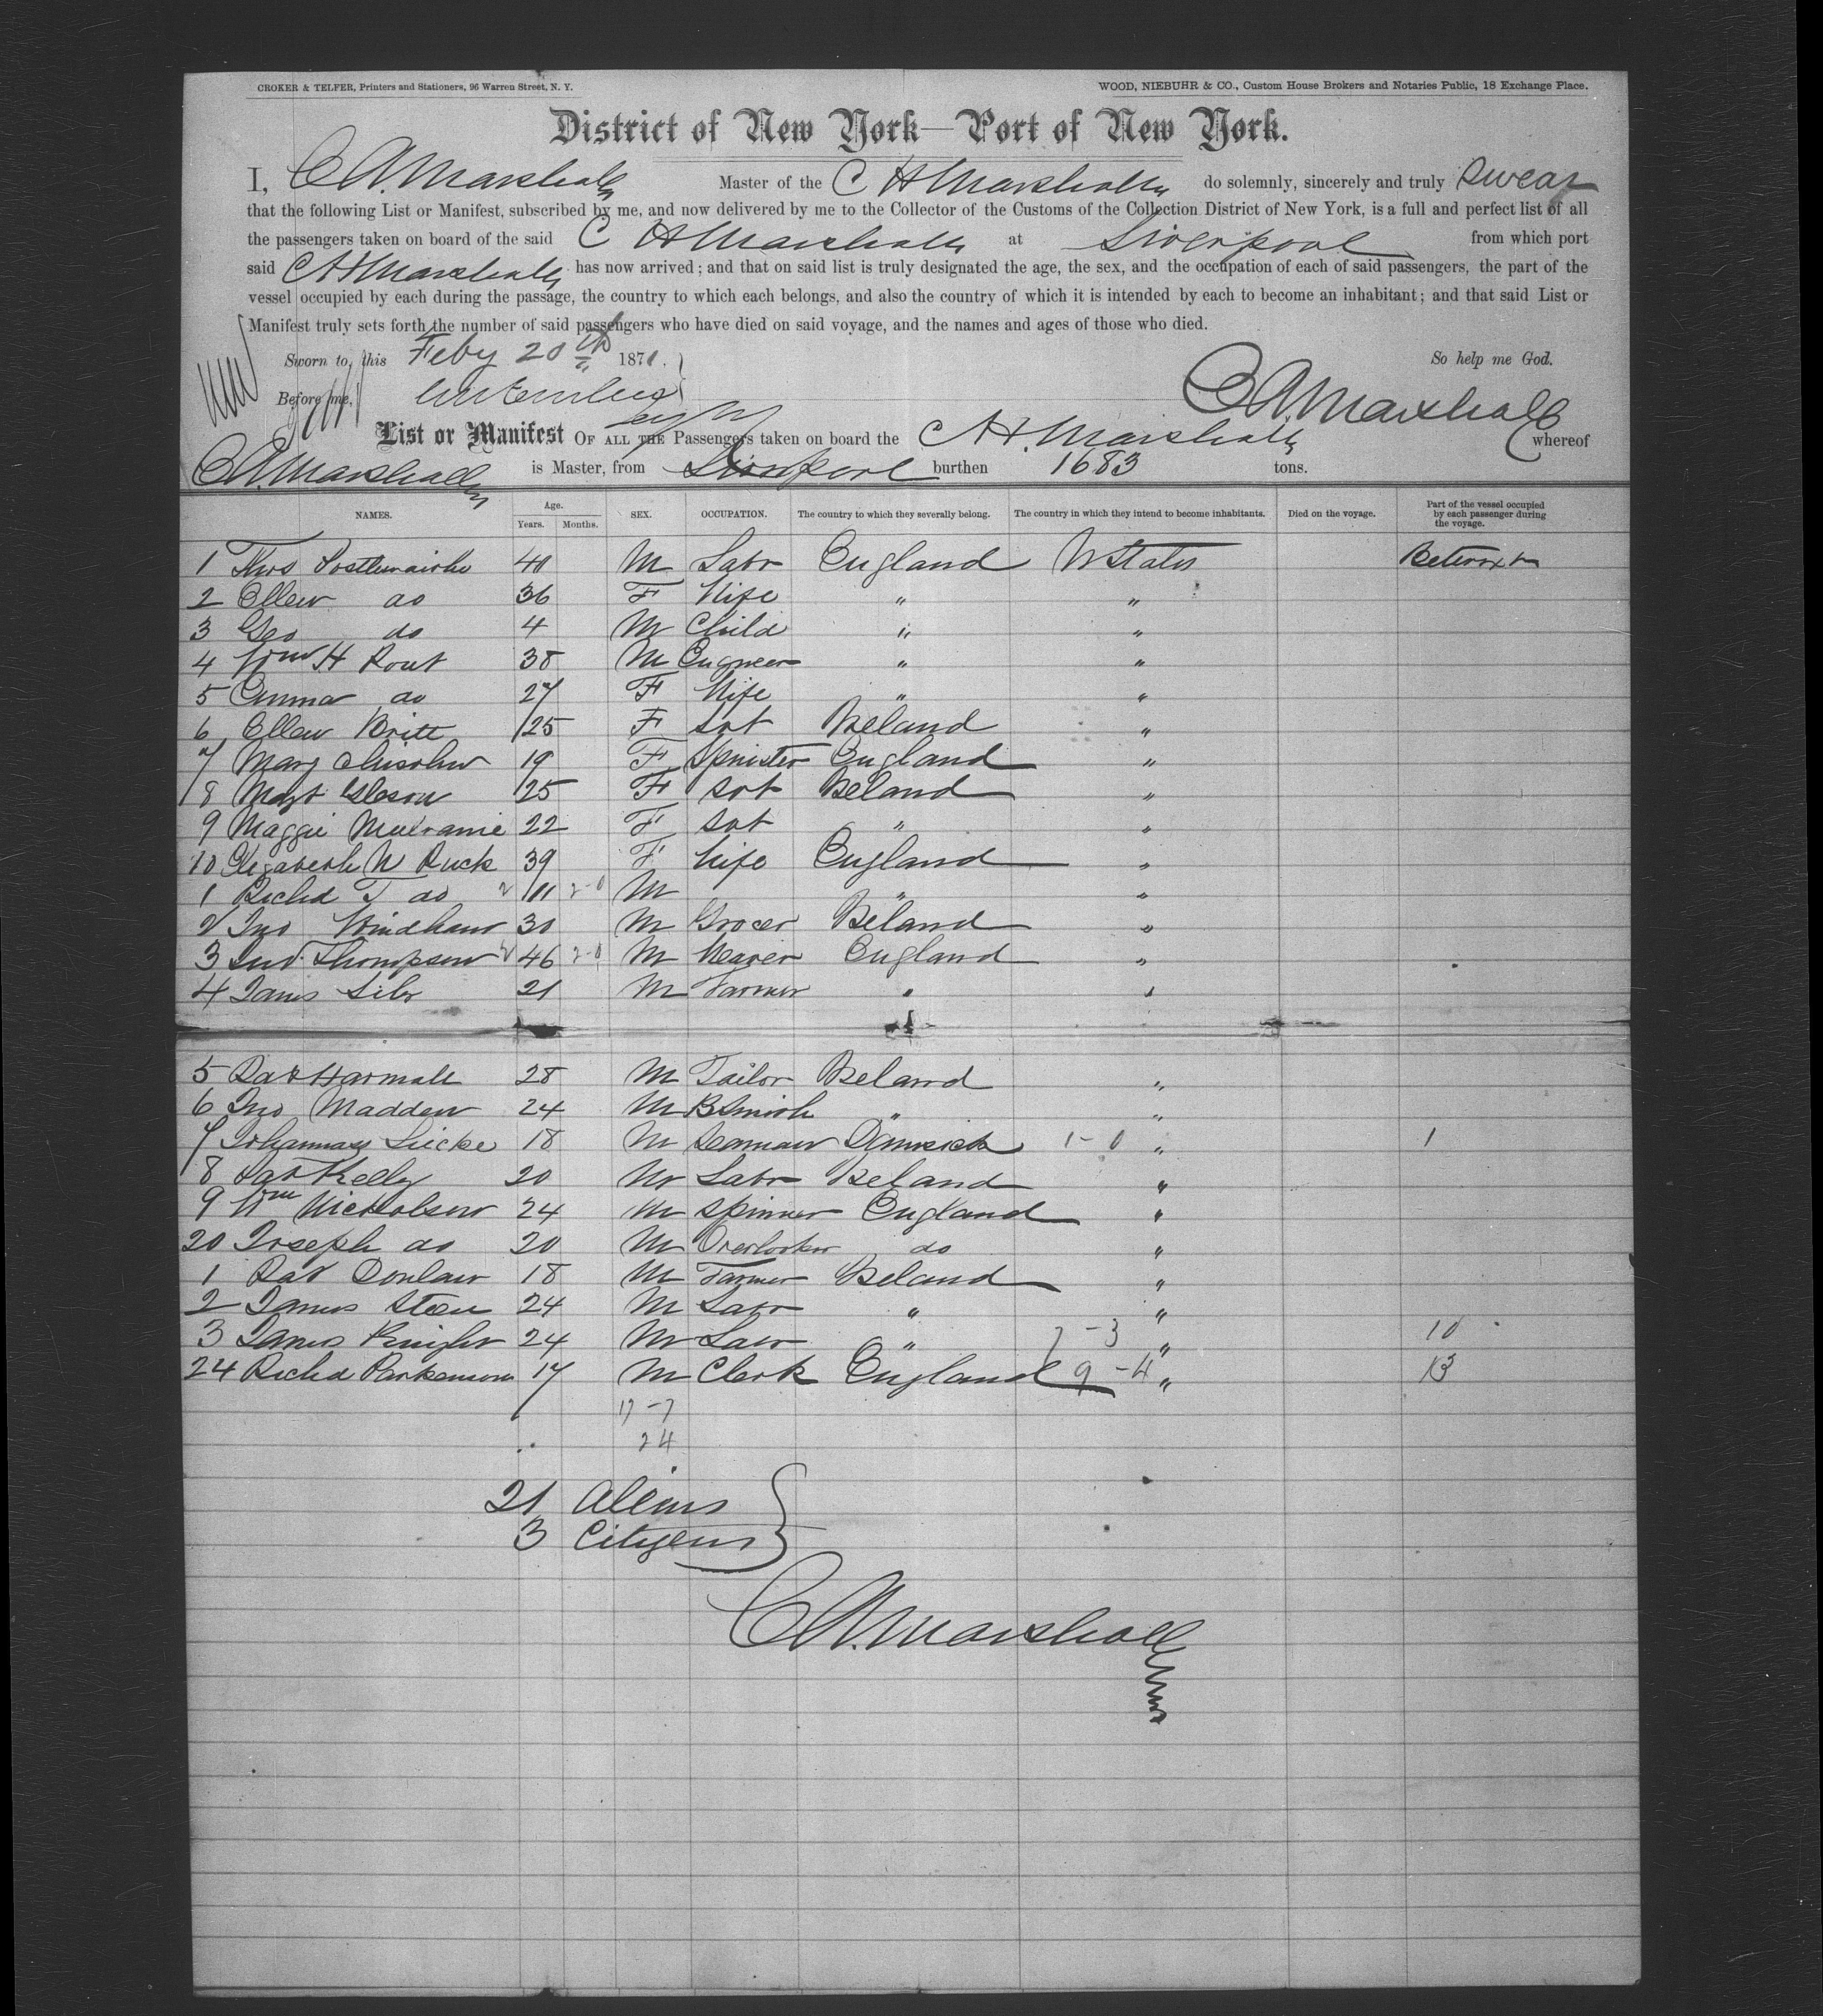 CROKER & TELFER, Printers and Stationers, 96 Warren Street, N. Y. WOOD, NIEBUHR & CO., Custom House Brokers and Notaries Public, 18 Exchange Place.
District of New York—Port of New York.
I, C A. Marshall Master of the C H Marshall do solemnly, sincerely and truly swear
that the following List or Manifest, subscribed by me, and now delivered by me to the Collector of the Customs of the Collection District of New York, is a full and perfect list of all
the passengers taken on board of the said C H Marshall at Liverpool from which port
said C H Marshall has now arrived; and that on said list is truly designated the age, the sex, and the occupation of each of said passengers, the part of the
vessel occupied by each during the passage, the country to which each belongs, and also the country of which it is intended by each to become an inhabitant; and that said List or
Manifest truly sets forth the number of said passengers who have died on said voyage, and the names and ages of those who died.
Sworn to, this Feby 20th 1871. So help me God.
Before me, C A. Marshall
List or Manifest OF ALL THE Passengers taken on board the C H. Marshall whereof
C A. Marshall is Master, from Liverpool burthen 1683 tons.
NAMES. Age. Years. Months. SEX. OCCUPATION. The country to which they severally belong. The country in which they intend to become inhabitants. Died on the voyage. Part of the vessel occupied by each passenger during the voyage.
1 Thos Postlewaithe 40 M Labr England U States
2 Ellen do 36 F Wife " "
3 Geo do 4 M Child " "
4 Wm H Rout 38 M Engineer " "
5 Emma do 27 F Wife " "
6 Ellen Britt 25 F Svt Ireland "
7 Mary Chisolm 19 F Spinster England "
8 Mgt Gleson 25 F Svt Ireland "
9 Maggie Mulranie 22 F Svt " "
10 Elizabeth W Ruck 39 F Wife England "
1 Richd T do 11 2-0 M " "
2 Jno Windham 30 M Grocer Ireland "
3 Jno Thompson 46 2-0 M Weaver England "
4 James Siby 21 M Farmer " "
5 Pat Harmall 28 M Tailor Ireland "
6 Jno Madden 24 M BSmith " "
7 Johannas Lucke 18 M Seaman 1-0 " 1
8 Pat Kelly 20 M Labr Ireland "
9 Wm Nicholson 24 M Spinner England "
20 Joseph do 20 M Overlooker do "
1 Pat Donlan 18 M Farmer Ireland "
2 James Steen 24 M Labr " "
3 James Knight 24 M Labr " 7-3 " 10
24 Richd Parkenson 17 M Clerk England 9-4 " 13
17-7
24
21 Aliens
3 Citizens
C A. Marshall